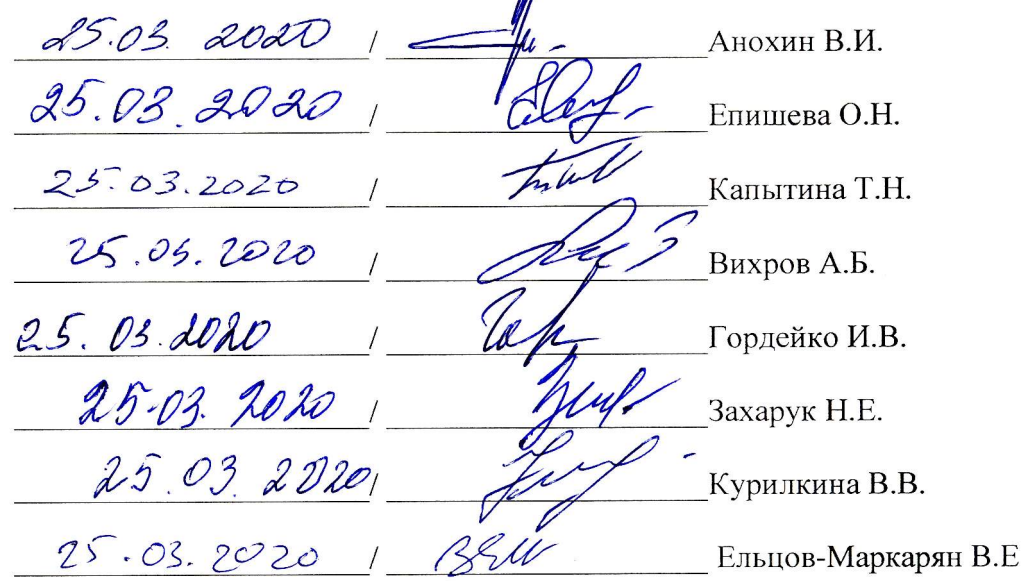 25.03. 2020 / Анохин В.И.
25.03.2020 / Епишева О.Н.
25.03.2020 / Капытина Т.Н.
25.03.2020 / Вихров А.Б.
25.03.2020 / Гордейко И.В.
25-03. 2020 / Захарук Н.Е.
25.03.2020 / Курилкина В.В.
25.03.2020 / Ельцов-Маркарян В.Е